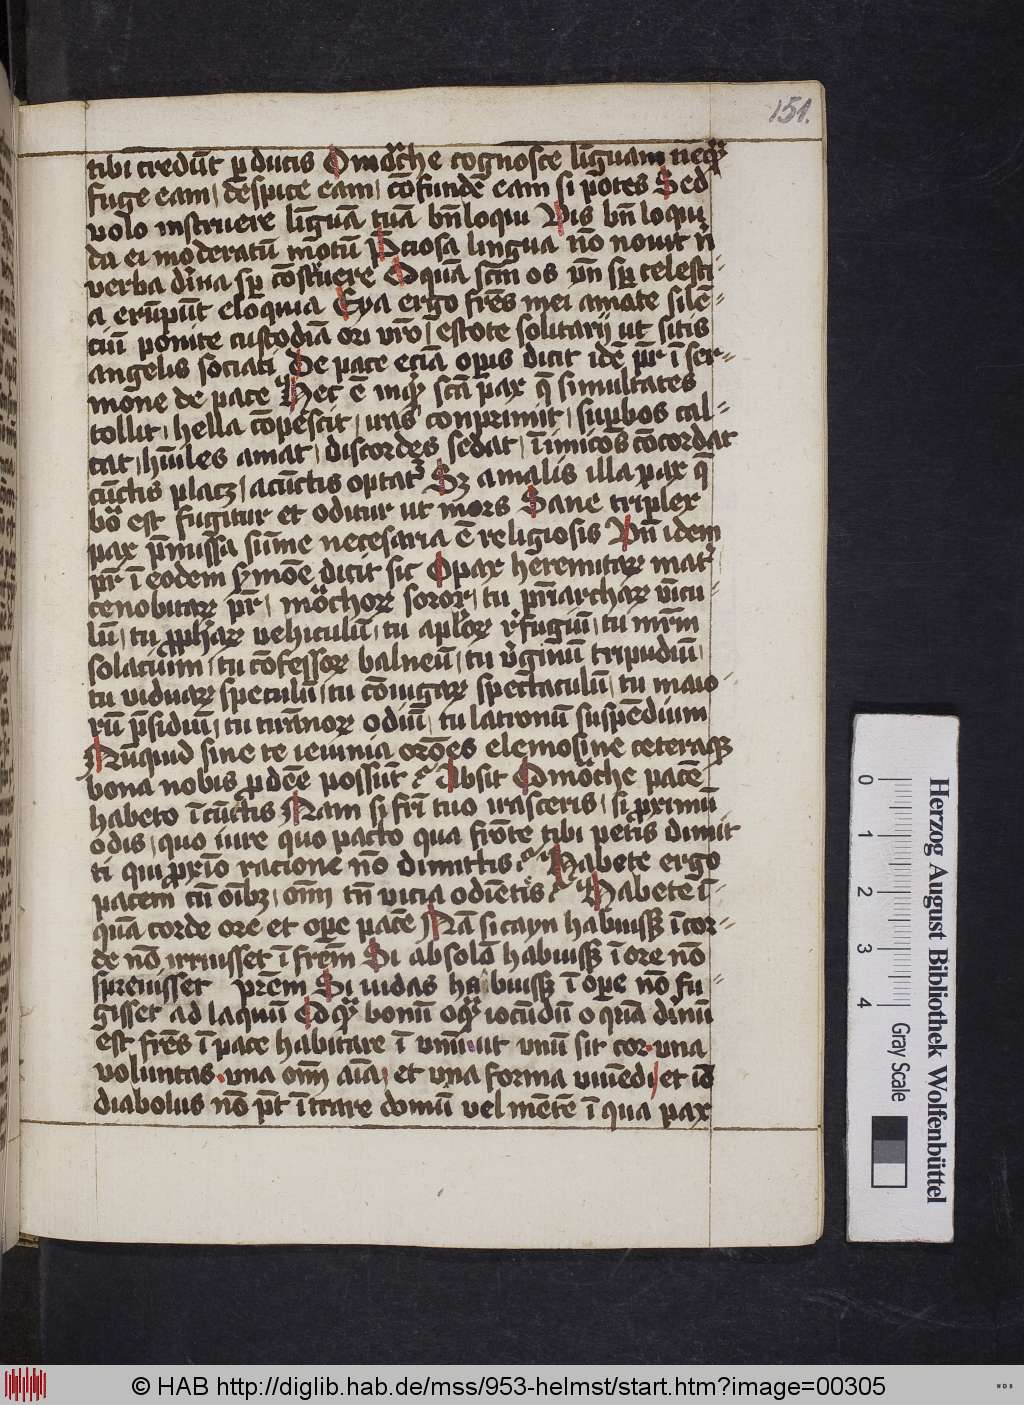 151.
tibi credūt p̱ducis O mōche cognosce linguam neqᷓ
fuge eam despice eam cōfunde eam si potes Sed
volo instruere linguā tuā bn̄ loqui Vis bn̄ loqui
da ei moderatū motū P̄ciosa lingua nō novit n̄
verba diīna sp̱ cōstruere O quā scm̄ os vn̄ sp̱ celesti
a erūpūt eloquia Eya ergo frēs mei amate silē
ciū ponite custodiā ori vr̄o estote solitarij ut sitis
angelis sociati De pace eciā op̱is dicit idē pr̄ ī ser
mone de pace Hec ē inqͥt scā pax q̄ simultates
tollit hella cōpescit iras conprimit sup̱bos cal
cat hūiles amat discordes sedat īimicos cōcordat
cūctis placꝫ a cūctis optatᷣ Sꝫ a malis illa pax q̄
bō est fugitur et oditur ut mors Sane triplex
pax p̄missa sūme necesaria ē religiosis Vn̄ idem
pr̄ ī eodem sermōe dicit sic O pax heremitaꝝ mat̄
cenobitaꝝ pr̄ mōchoꝝ soror tu pr̄iarchaꝝ vīcu
lū tu ꝓphaꝝ vehiculū tu apl̄oꝝ rͤfugiū tu mr̄m
solacium tu cōfessoꝝ balneū tu vͥginū tripudiū
tu viduaꝝ speculū tu cōiugaꝝ spectaculū tu maio
rū p̄sidiū tu tirānoꝝ odiū tu latronū suspēdium
Nūquid sine te ieiunia orōes elemosine ceteraqꝫ
bona nobis ꝓdēe possūt Absit O mōche pacē
habeto ī cūctis Nam si fr̄i tuo irasceris si ꝓximū
odis quo iure quo pacto qua frōte tibi petis dimit
ti qui ꝓxīo racione nō dimittis Habete ergo
pacem cū oībꝫ om̄ tn̄ vicia odiētis Habete ī
quā corde ore et op̱e pacē Nā si cayn habuissꝫ ī cor
de nō irruisset ī frēm Si absolō habuissꝫ ī ore nō
sprevisset prēm Si iudas habuissꝫ ī op̱e nō fu
gisset ad laqueū Ecce qͣ bonū et qͣ iocūdū o quā diīnū
est frēs ī pace habitare ī unū ut unū sit cor una
voluntas una om̄ aīa et una forma vivēdi et iō
diabolus nō pt̄ ītrare domū vel mētē ī qua pax
Herzog August Bibliothek Wolfenbüttel
0 1 2 3 4
Gray Scale
© HAB http://diglib.hab.de/mss/953-helmst/start.htm?image=00305